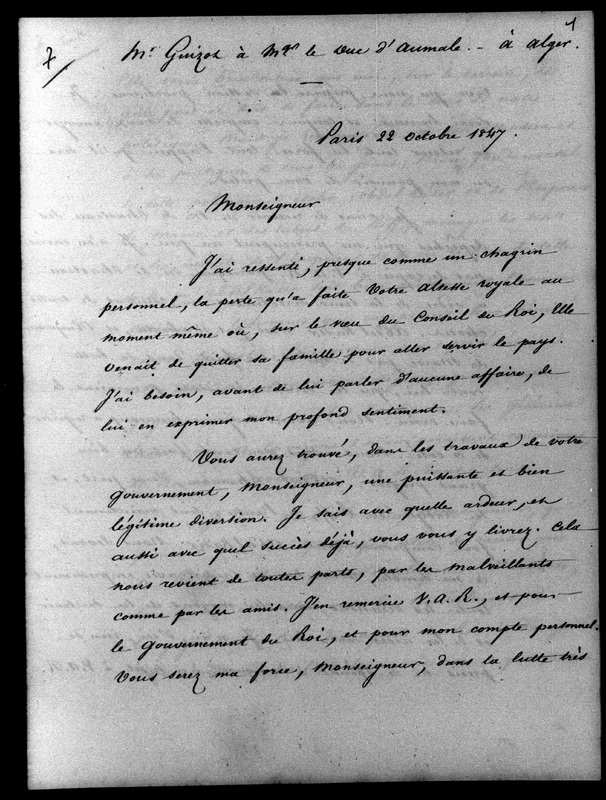 1
7
Mr Guizot à Mgr le Duc d'aumale. - à alger.
Paris 22 octobre 1847.
Monseigneur
J'ai ressenti, presque comme un chagrin
personnel, la perte qu'a faite Votre altesse royale au
moment même où, sur le vœu du Conseil du Roi, Elle
venait de quitter sa famille pour aller servir le pays.
J'ai besoin, avant de lui parler d'aucune affaire, de
lui en exprimer mon profond sentiment.
Vous aurez trouvé, dans les travaux de votre
gouvernement, Monseigneur, une puissante et bien
légitime diversion. Je sais avec quelle ardeur, et
aussi avec quel succès déjà, vous vous y livrez. Cela
nous revient de toutes parts, par les malveillants
comme par les amis. J'en remercie V.A.R., et pour
le gouvernement du Roi, et pour mon compte personnel.
Vous serez ma force, Monseigneur, dans la lutte très